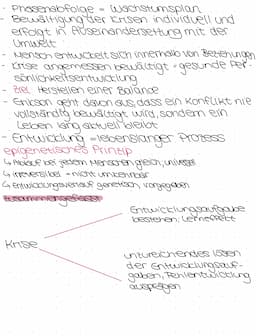 - Phasenabfolge = Wachstumsplan
- Bewältigung der Krisen individuell und
erfolgt in Auseinandersetzung mit der
Umwelt
- Mensch entwickelt sich innerhalb von Beziehungen
- Krise angemessen bewältigt = gesunde Per-
sönlichkeitsentwicklung
- Ziel: Herstellen einer Balance
- Erikson geht davon aus, dass ein Konflikt nie
vollständig bewältigt wird, sondern ein
Leben lang aktuell bleibt
- Entwicklung = lebenslanger Prozess
epigenetisches Prinzip
↳ Ablauf bei jedem Menschen gleich, universell
↳ irreversibel = nicht umkehrbar
↳ Entwicklungsverlauf genetisch, vorgegeben
Entwicklungsaufgabe
bestehen: Lerneffekt
Krise
unzureichendes lösen
der Entwicklungsauf-
gaben, Fehlentwicklung